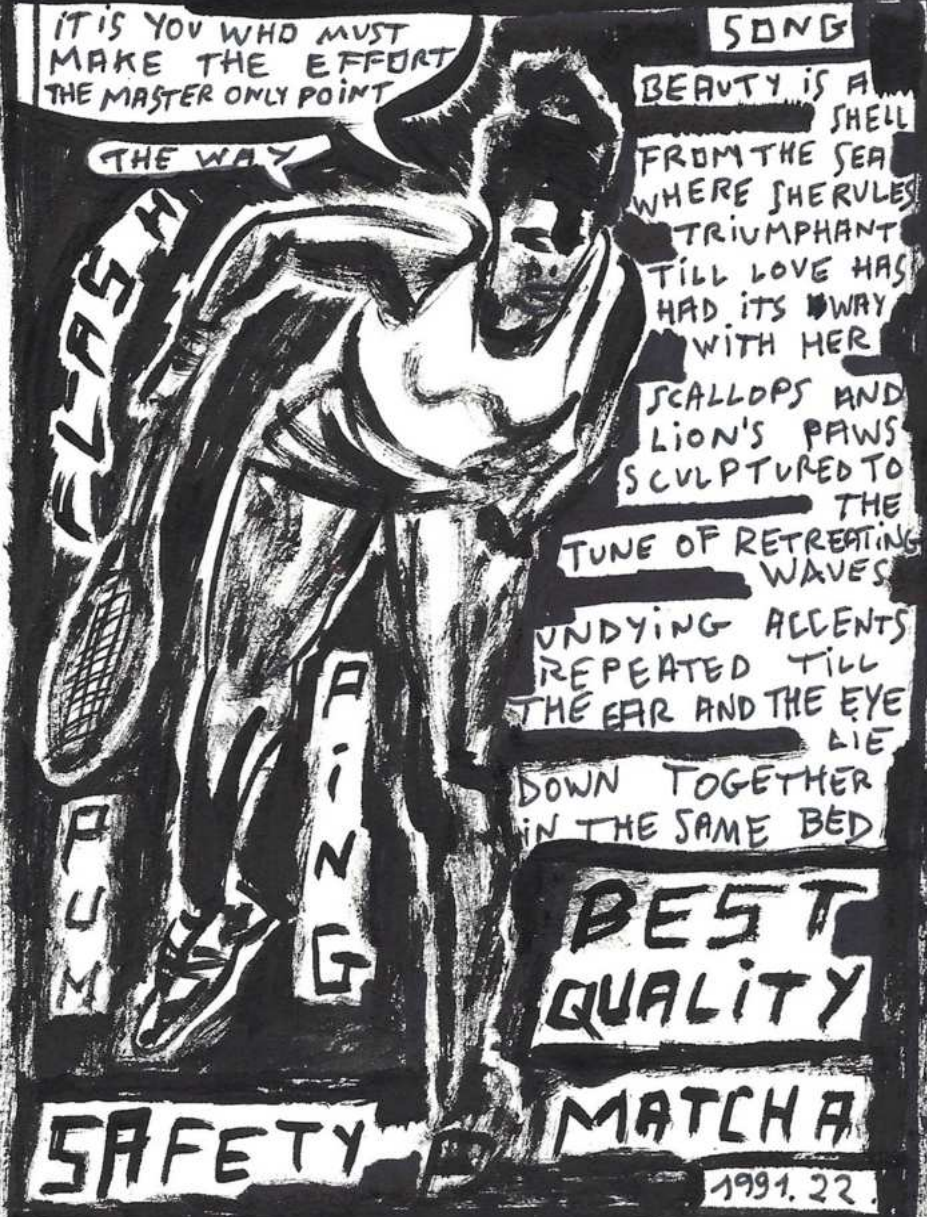 iT iS YOU WHO MUST
MAKE THE EFFORT
THE MASTER ONLY POINT
THE WAY
FLASH
PUM
PiNG
SAFETY
SONG
BEAUTY iS A
SHELL
FROM THE SEA
WHERE SHE RULES
TRiUMPHANT
TiLL LOVE HAS
HAD iTS WAY
WiTH HER
SCALLOPS AND
LiON'S PAWS
SCULPTURED TO
THE
TUNE OF RETREATiNG
WAVES
UNDYiNG ACCENTS
REPEATED TiLL
THE EAR AND THE EYE
LiE
DOWN TOGETHER
iN THE SAME BED
BEST
QUALiTY
MATCHA
1991.22.